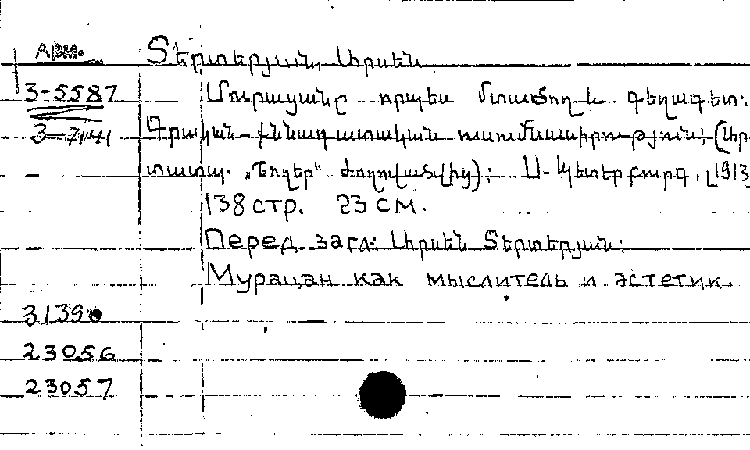 Арм.
Տերտերյան, Արսեն
3-5587
Մուրացանը որպես մտածող և գեղագետ:
3-7141
Գրական-քննադատական ուսումնասիրություն, (Ար
տատպ. „Եղեր" ժողովածվից): Ս-Պետերբուրգ, [1913
138 стр. 23 см.
Перед загл: Արսեն Տերտերյան:
Мурацан как мыслитель и эстетик.
3139
23056
23057